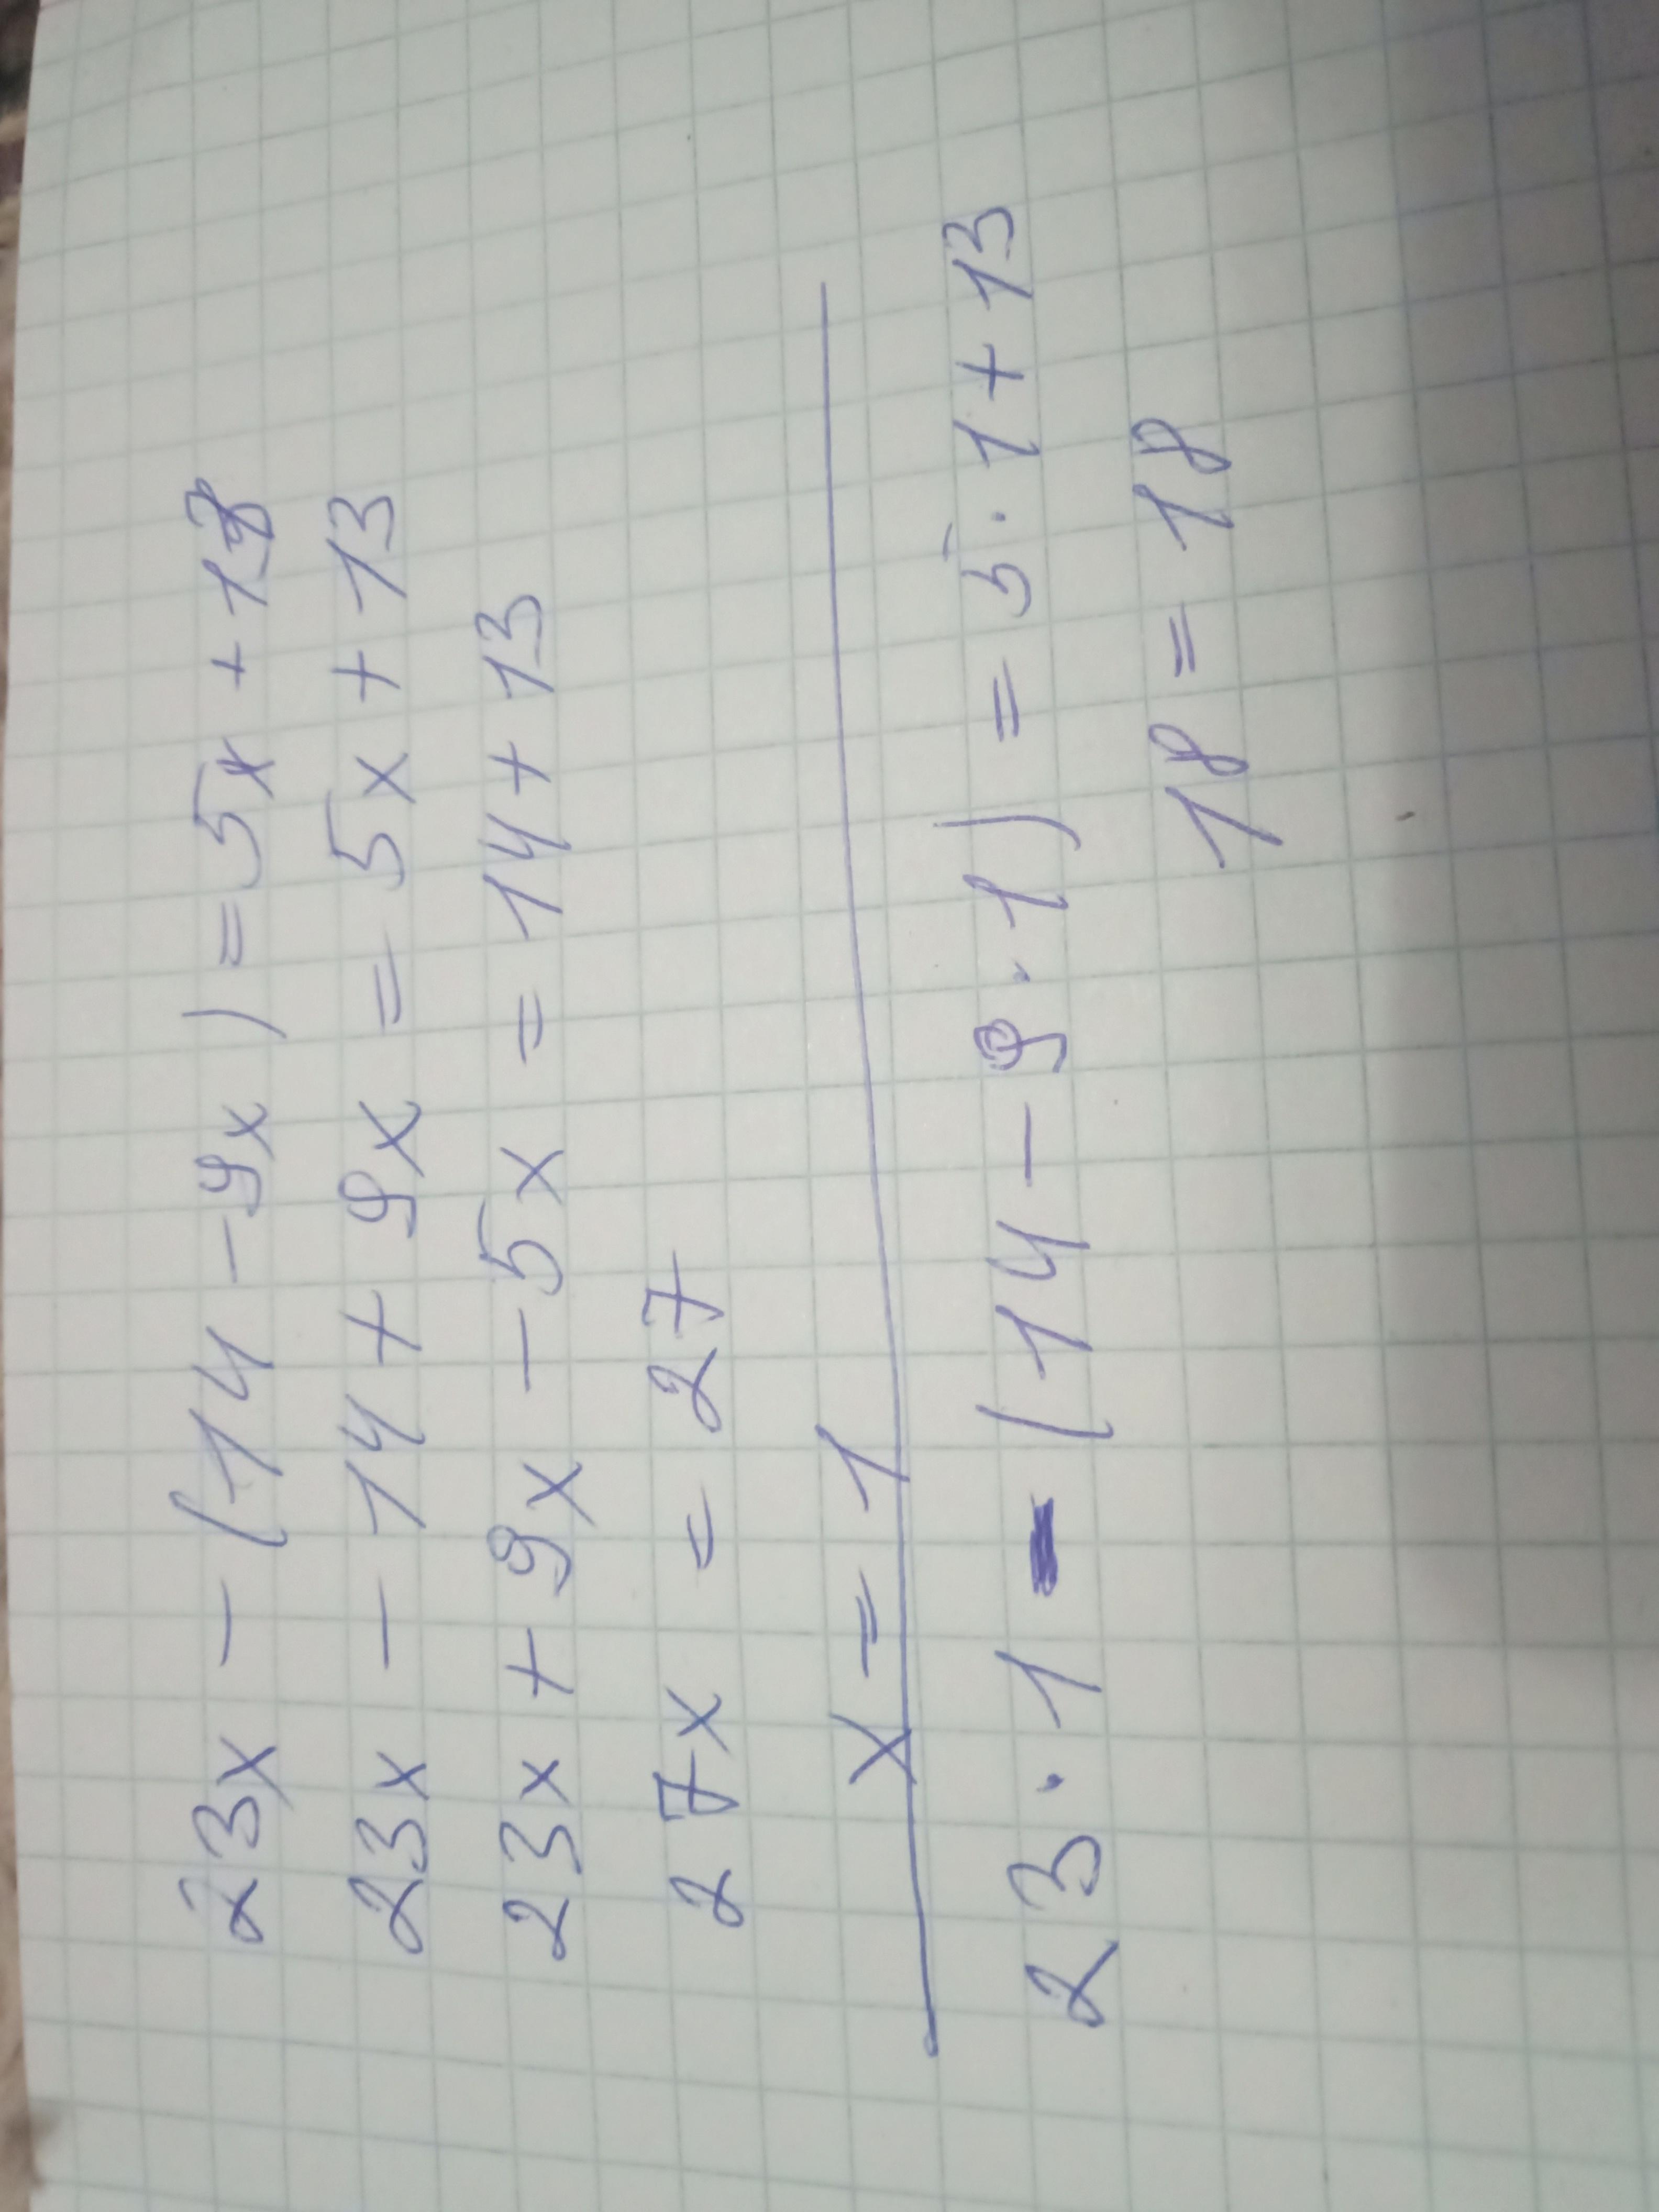 23x - (14 - 9x) = 5x + 13
23x - 14 + 9x = 5x + 13
23x + 9x - 5x = 14 + 13
27x = 27
x = 1
23 · 1 - (14 - 9 · 1) = 5 · 1 + 13
18 = 18